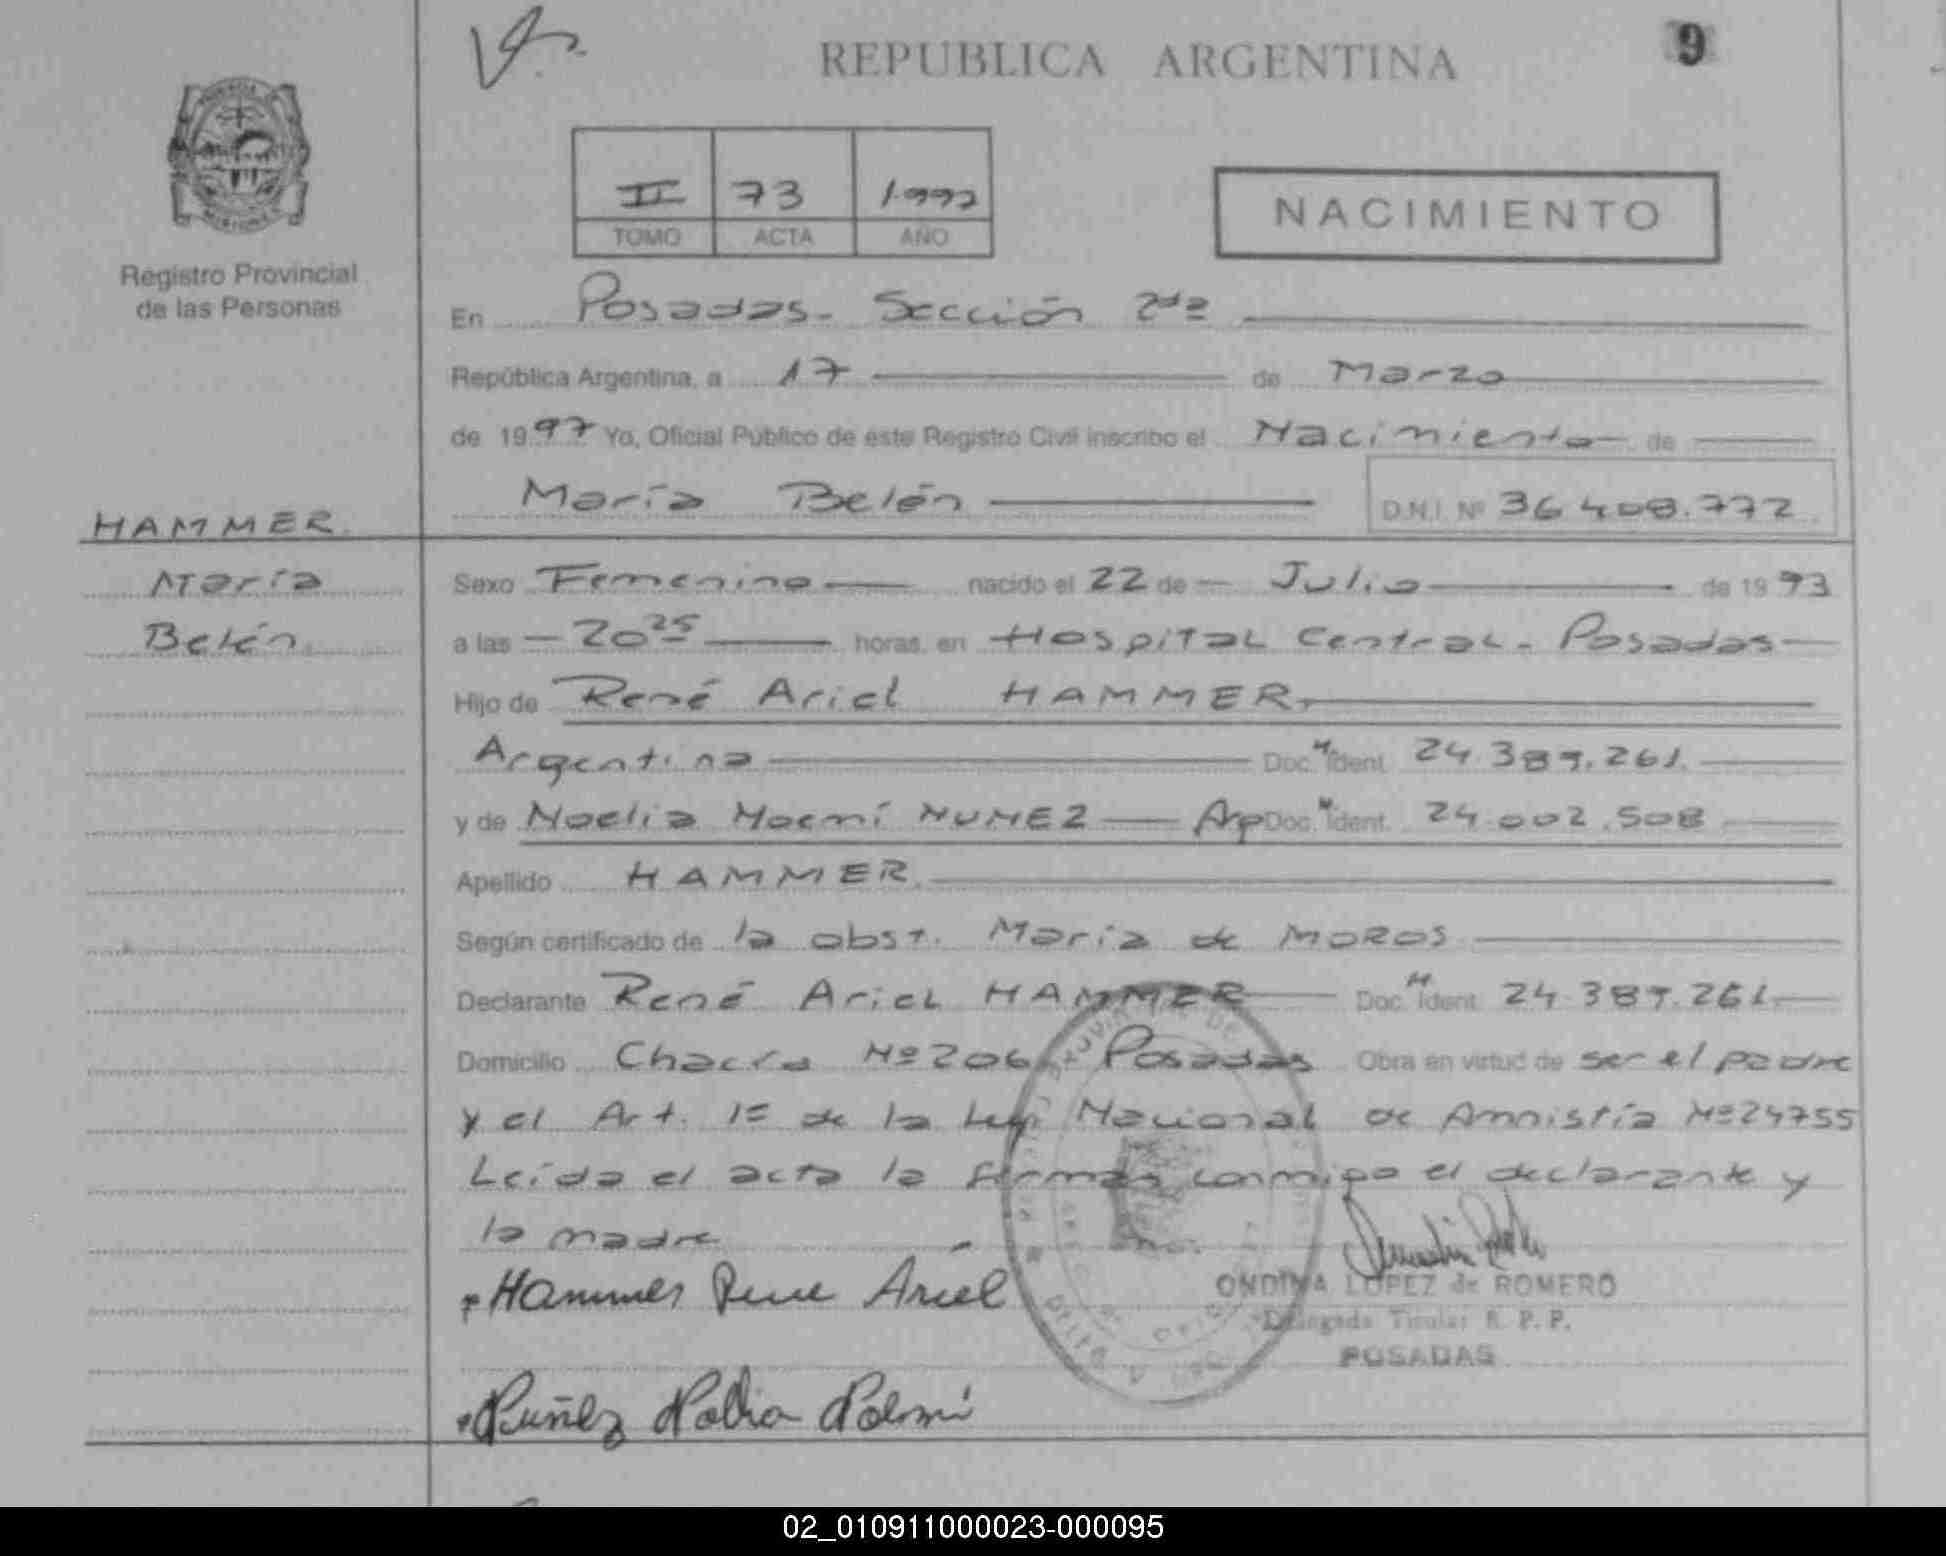 REPUBLICA ARGENTINA
9
II 73 1.997
TOMO ACTA AÑO
NACIMIENTO
Registro Provincial
de las Personas
En Posadas - Sección 2da
República Argentina, a 17 de Marzo
de 1997 Yo, Oficial Público de este Registro Civil inscribo el Nacimiento de
María Belén D.N.I. Nº 36.408.772
HAMMER
María
Belén
Sexo Femenino nacido el 22 de Julio de 1993
a las 20 25 horas en Hospital Central - Posadas
Hijo de René Ariel HAMMER
Argentina Doc. Ident. 24.389.261
y de Noelia Noemí NUÑEZ Arg Doc. Ident. 24.002.508
Apellido HAMMER
Según certificado de la obst. María de MOROS
Declarante René Ariel HAMMER Doc. Ident. 24.389.261
Domicilio Chacra Nº 206 Posadas Obra en virtud de ser el padre
y el Art. 1º de la Ley Nacional de Amnistía Nº 24755
Leída el acta la firman conmigo el declarante y
la madre
Hammer Rene Ariel
ONDINA LOPEZ de ROMERO
Delegada Titular R. P. P.
POSADAS
Nuñez Nolia Noemí
02_010911000023-000095